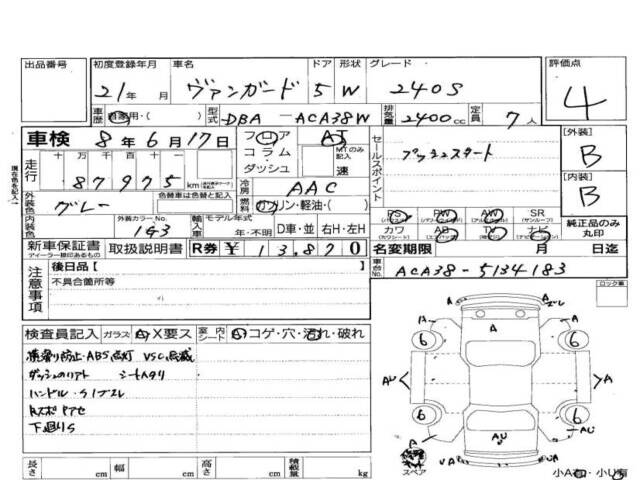 出品番号 初度登録年月 車名 ドア 形状 グレード 評価点
21年 月 ヴァンガード 5 W 240S 4
車歴 自家用・( ) 型式 DBA-ACA38W 排気量 2400cc 定員 7人
車検 8年6月17日 フロア コラム・ダッシュ AT MTのみ記入 速
セールスポイント プッシュスタート
[外装] B
[内装] B
走行 十 万 千 百 十 87975km
冷房 AAC
外装色 グレー 色替車は色替と記入 燃料 ガソリン・軽油・( )
PS PW AW SR
(サンルーフ)
カワ AB TV ナビ
純正品のみ丸印
内装色 外装カラーNo. 1G3 輸入車 モデル年式 年・不明 D車・並 右H・左H
新車保証書 取扱説明書 R券 ¥13,870 名変期限 月 日迄
ディーラー捺印あるもの
車台No. ACA38-5134183
注意事項 後日品【
不具合箇所等
ロック車
検査員記入 ガラス A・X要ス 室内 シート コゲ・穴・汚れ・破れ
横滑り防止・ABS点灯 VSC
ダッシュ シートスタリ
ハンドル・シフスレ
下廻りS
A スレ
A A
6 6
AU A
6 6
A AU AU
スペア VA A UA
長さ cm 幅 cm 高さ cm 積載量 kg
小A有・小U有
現在色を記入→